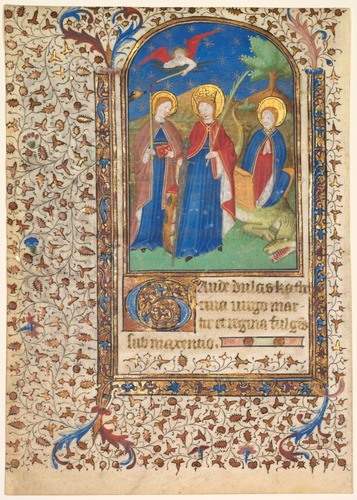 Gaude dulcis kathe
rina virgo mar
tir et regina fulges
sub maxencio.